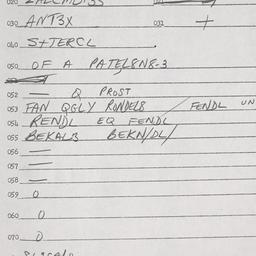 030 ANT3X 032 +
040 S+TERCL
050 OF A PATEL8N8-3
052 — Q PROST
053 FAN QGLY RONDEL8 / FENDL UN
054 RENDL EQ FENDL
055 BEKAL3 BEKN/DL/
056 —
057 —
058 —
059 0
060 0
070 0